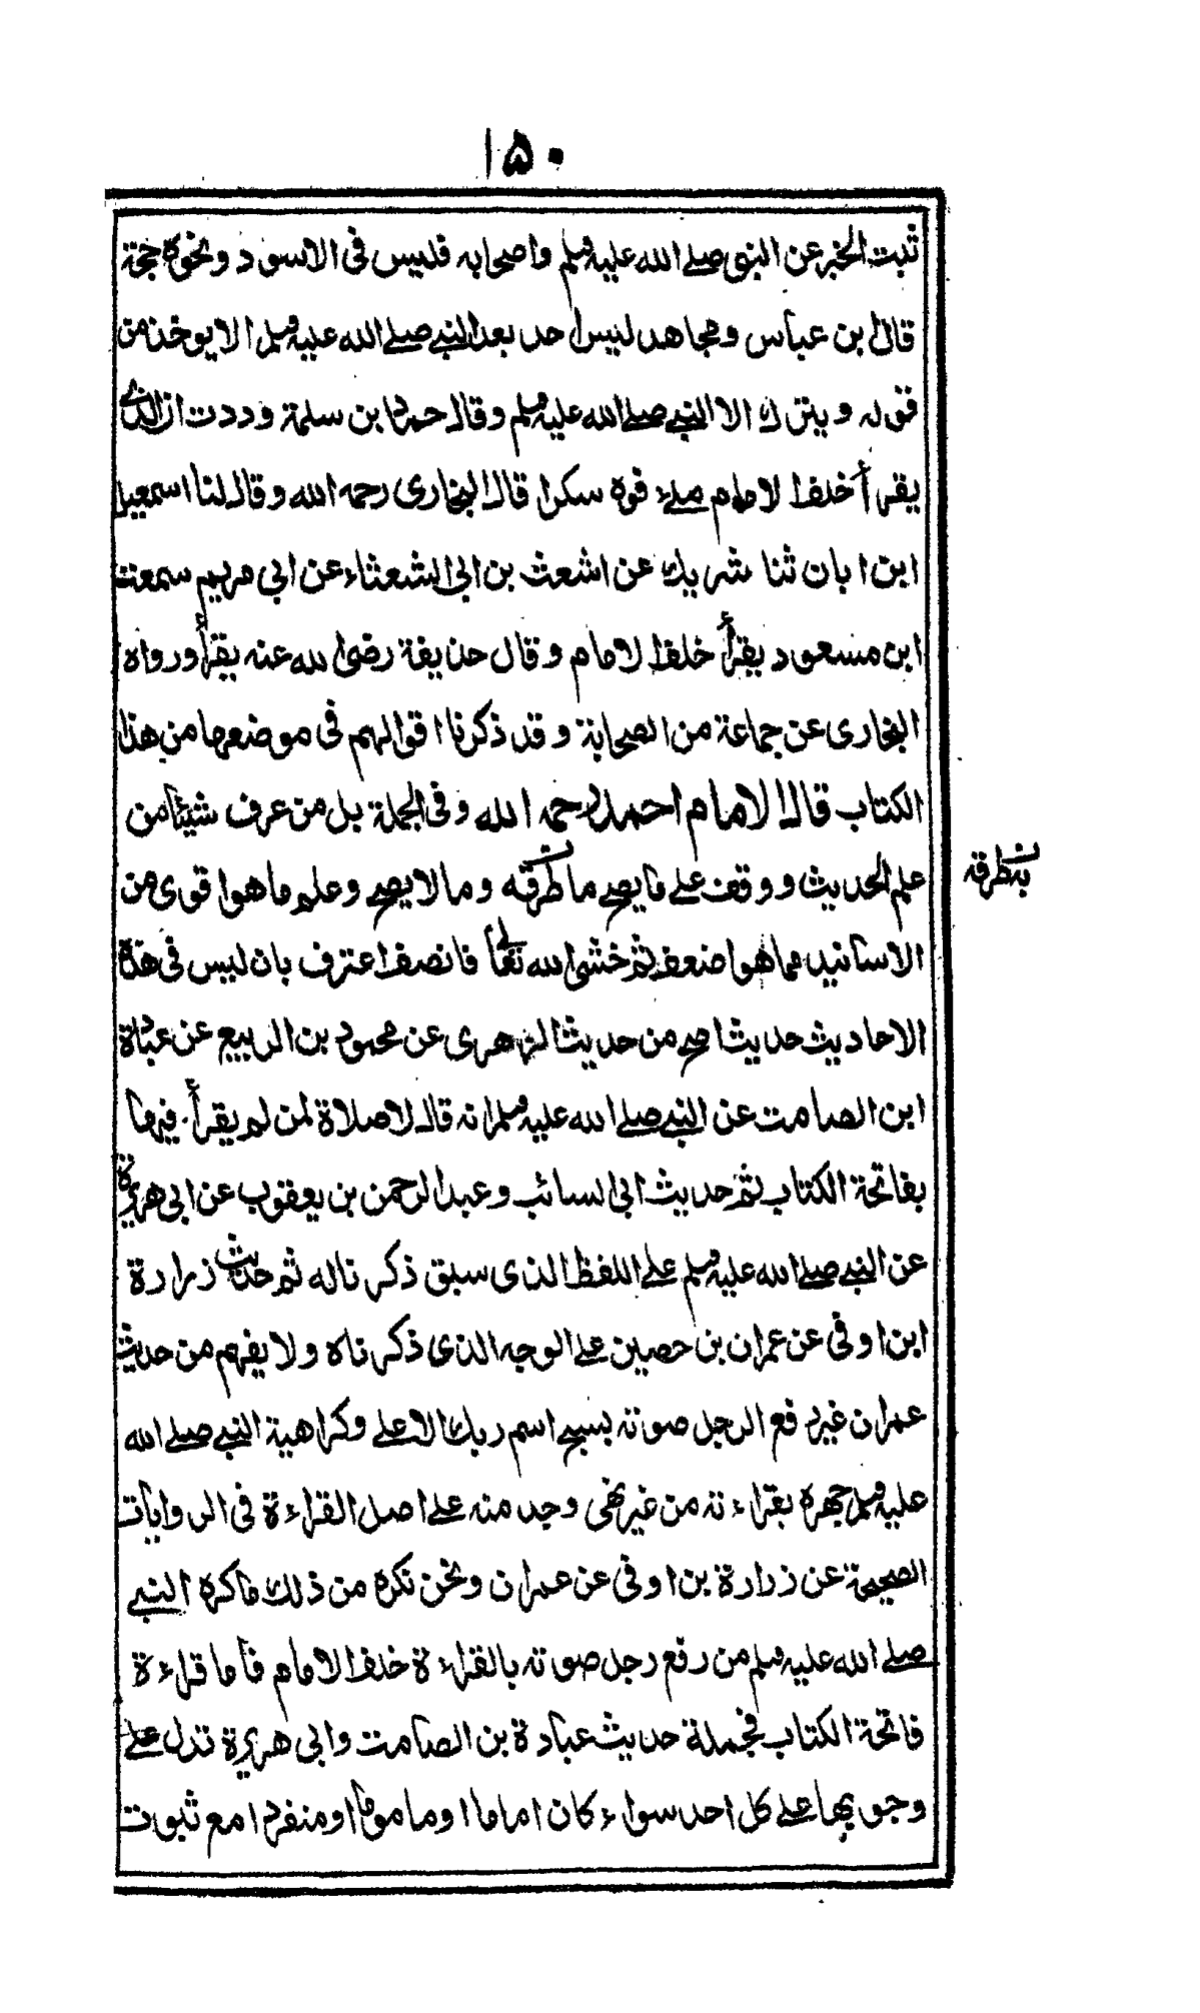 ۱۵۰
ثبت الخبر عن النبی صلے الله علیه وسلم واصحابه فلیس فی الاسود ونحوه حجة
قال بن عباس ومجاهد لیس احد بعد النبے صلے الله علیه وسلم الا یوخذ من
قوله ویترك الا النبے صلے الله علیه وسلم وقال حماد بن سلمة وددت ان الذی
یقرأ خلف الامام ملء فوه سکرا قال البخاری رحمه الله وقال لنا اسمعیل
ابن ابان ثنا شریك عن اشعث بن ابی الشعثاء عن ابی مریم سمعت
ابن مسعود یقرأ خلف الامام وقال حذیفة رضی الله عنه یقرأ ورواه
البخاری عن جماعة من الصحابة وقد ذکرنا اقوالهم فی موضعها من هذا
الکتاب قال الامام احمد رحمه الله وفی الجملة بل من عرف شیئا من
علم الحدیث ووقف علے ما یصح ما طرقه وما لا یصح وعلم ما هو اقوی من
به طرقه
الاسانید مما هو اضعف ثم خشی الله تعالی فانصف اعترف بان لیس فی هذه
الاحادیث حدیث اصح من حدیث الزهری عن محمود بن الربیع عن عبادة
ابن الصامت عن النبے صلے الله علیه وسلم انه قال لا صلاة لمن لم یقرأ فیها
بفاتحة الکتاب ثم حدیث ابی السائب وعبد الرحمن بن یعقوب عن ابی هریرة
عن النبے صلے الله علیه وسلم علے اللفظ الذی سبق ذکرنا له ثم حدیث زرارة
ابن اوفی عن عمران بن حصین علے الوجه الذی ذکرناه ولا یفهم من حدیث
عمران غیر رفع الرجل صوته بسبح اسم ربك الاعلے وکراهیة النبے صلے الله
علیه وسلم جهره بقراءته من غیر نهی وجد منه علے اصل القراءة فی الروایات
الصحیحة عن زرارة بن اوفی عن عمران ونحن نکره من ذلك ما کره النبے
صلے الله علیه وسلم من رفع رجل صوته بالقراءة خلف الامام فأما قراءة
فاتحة الکتاب فجملة حدیث عبادة بن الصامت وابی هریرة تدل علے
وجوبها علے کل احد سواء کان اماما او ماموما او منفردا مع ثبوت